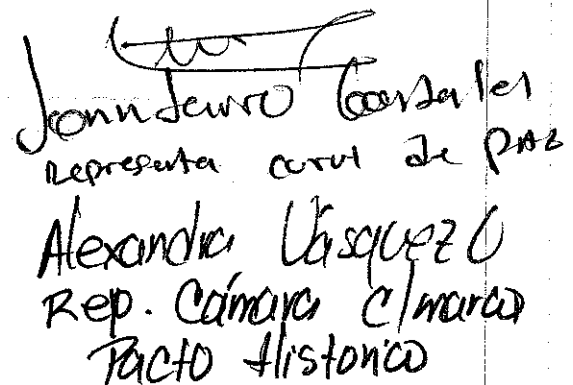 Jhon Jairo González
Representa curul de PAZ
Alexandra Vásquez O
Rep. Cámara C/marca
Pacto Histórico